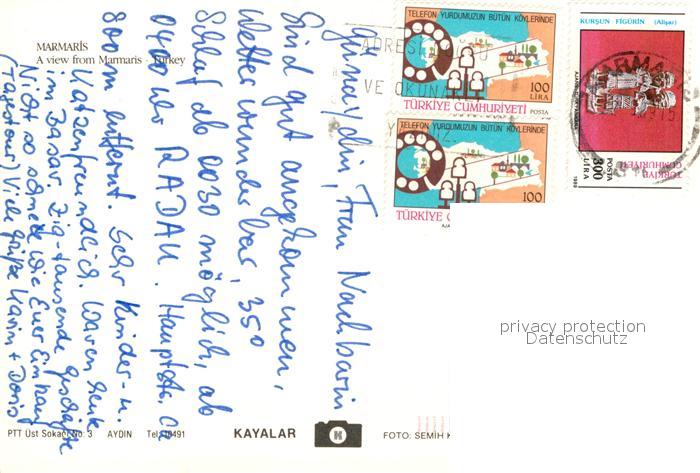 MARMARİS
A view from Marmaris - Turkey
Günaydin, Frau Nachbarin
Sind gut angekommen,
Wetter wunderbar, 35°
Schlaf ab 0030 möglich, ab
0400 Uhr RADAU. Hauptstr. ca
800 m entfernt. Sehr Kinder- u.
Katzenfreundlich. Waren heute
im Basar. Zig-tausende Geschäfte
Nicht so schnell wie Euer Einkauf
(Tagestour) Viele Grüße Karin + Doris
TELEFON YURDUMUZUN BÜTÜN KÖYLERİNDE
100
LİRA
TÜRKİYE CUMHURİYETİ POSTA
TELEFON YURDUMUZUN BÜTÜN KÖYLERİNDE
100
TÜRKİYE C
KURŞUN FİGÜRİN (Alişar)
TÜRKİYE
CUMHURİYETİ
POSTA
300
LİRA
1989
ADRESİ
VE OKUNA
MARMARİ
privacy protection
Datenschutz
PTT Üst Sokağı No: 3 AYDIN Tel: 10491
KAYALAR
K
FOTO: SEMİH K